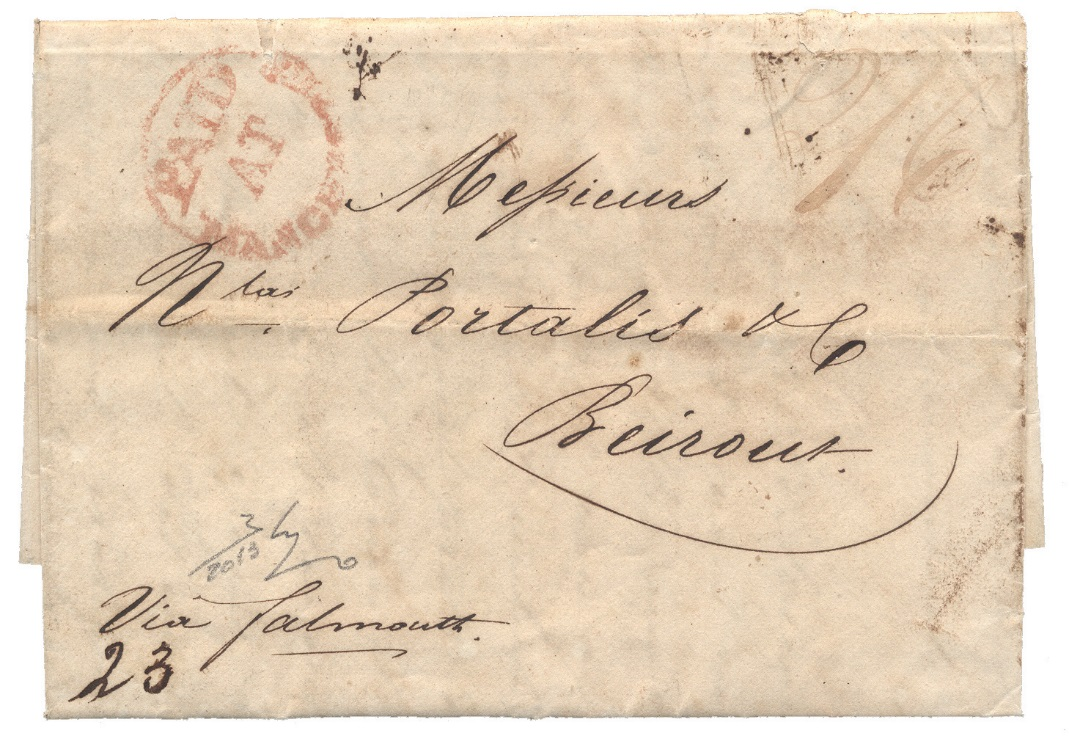 PAID
AT
MANCR
Messieurs
Nlas Portalis & C
Beirout.
Via Falmouth.
23